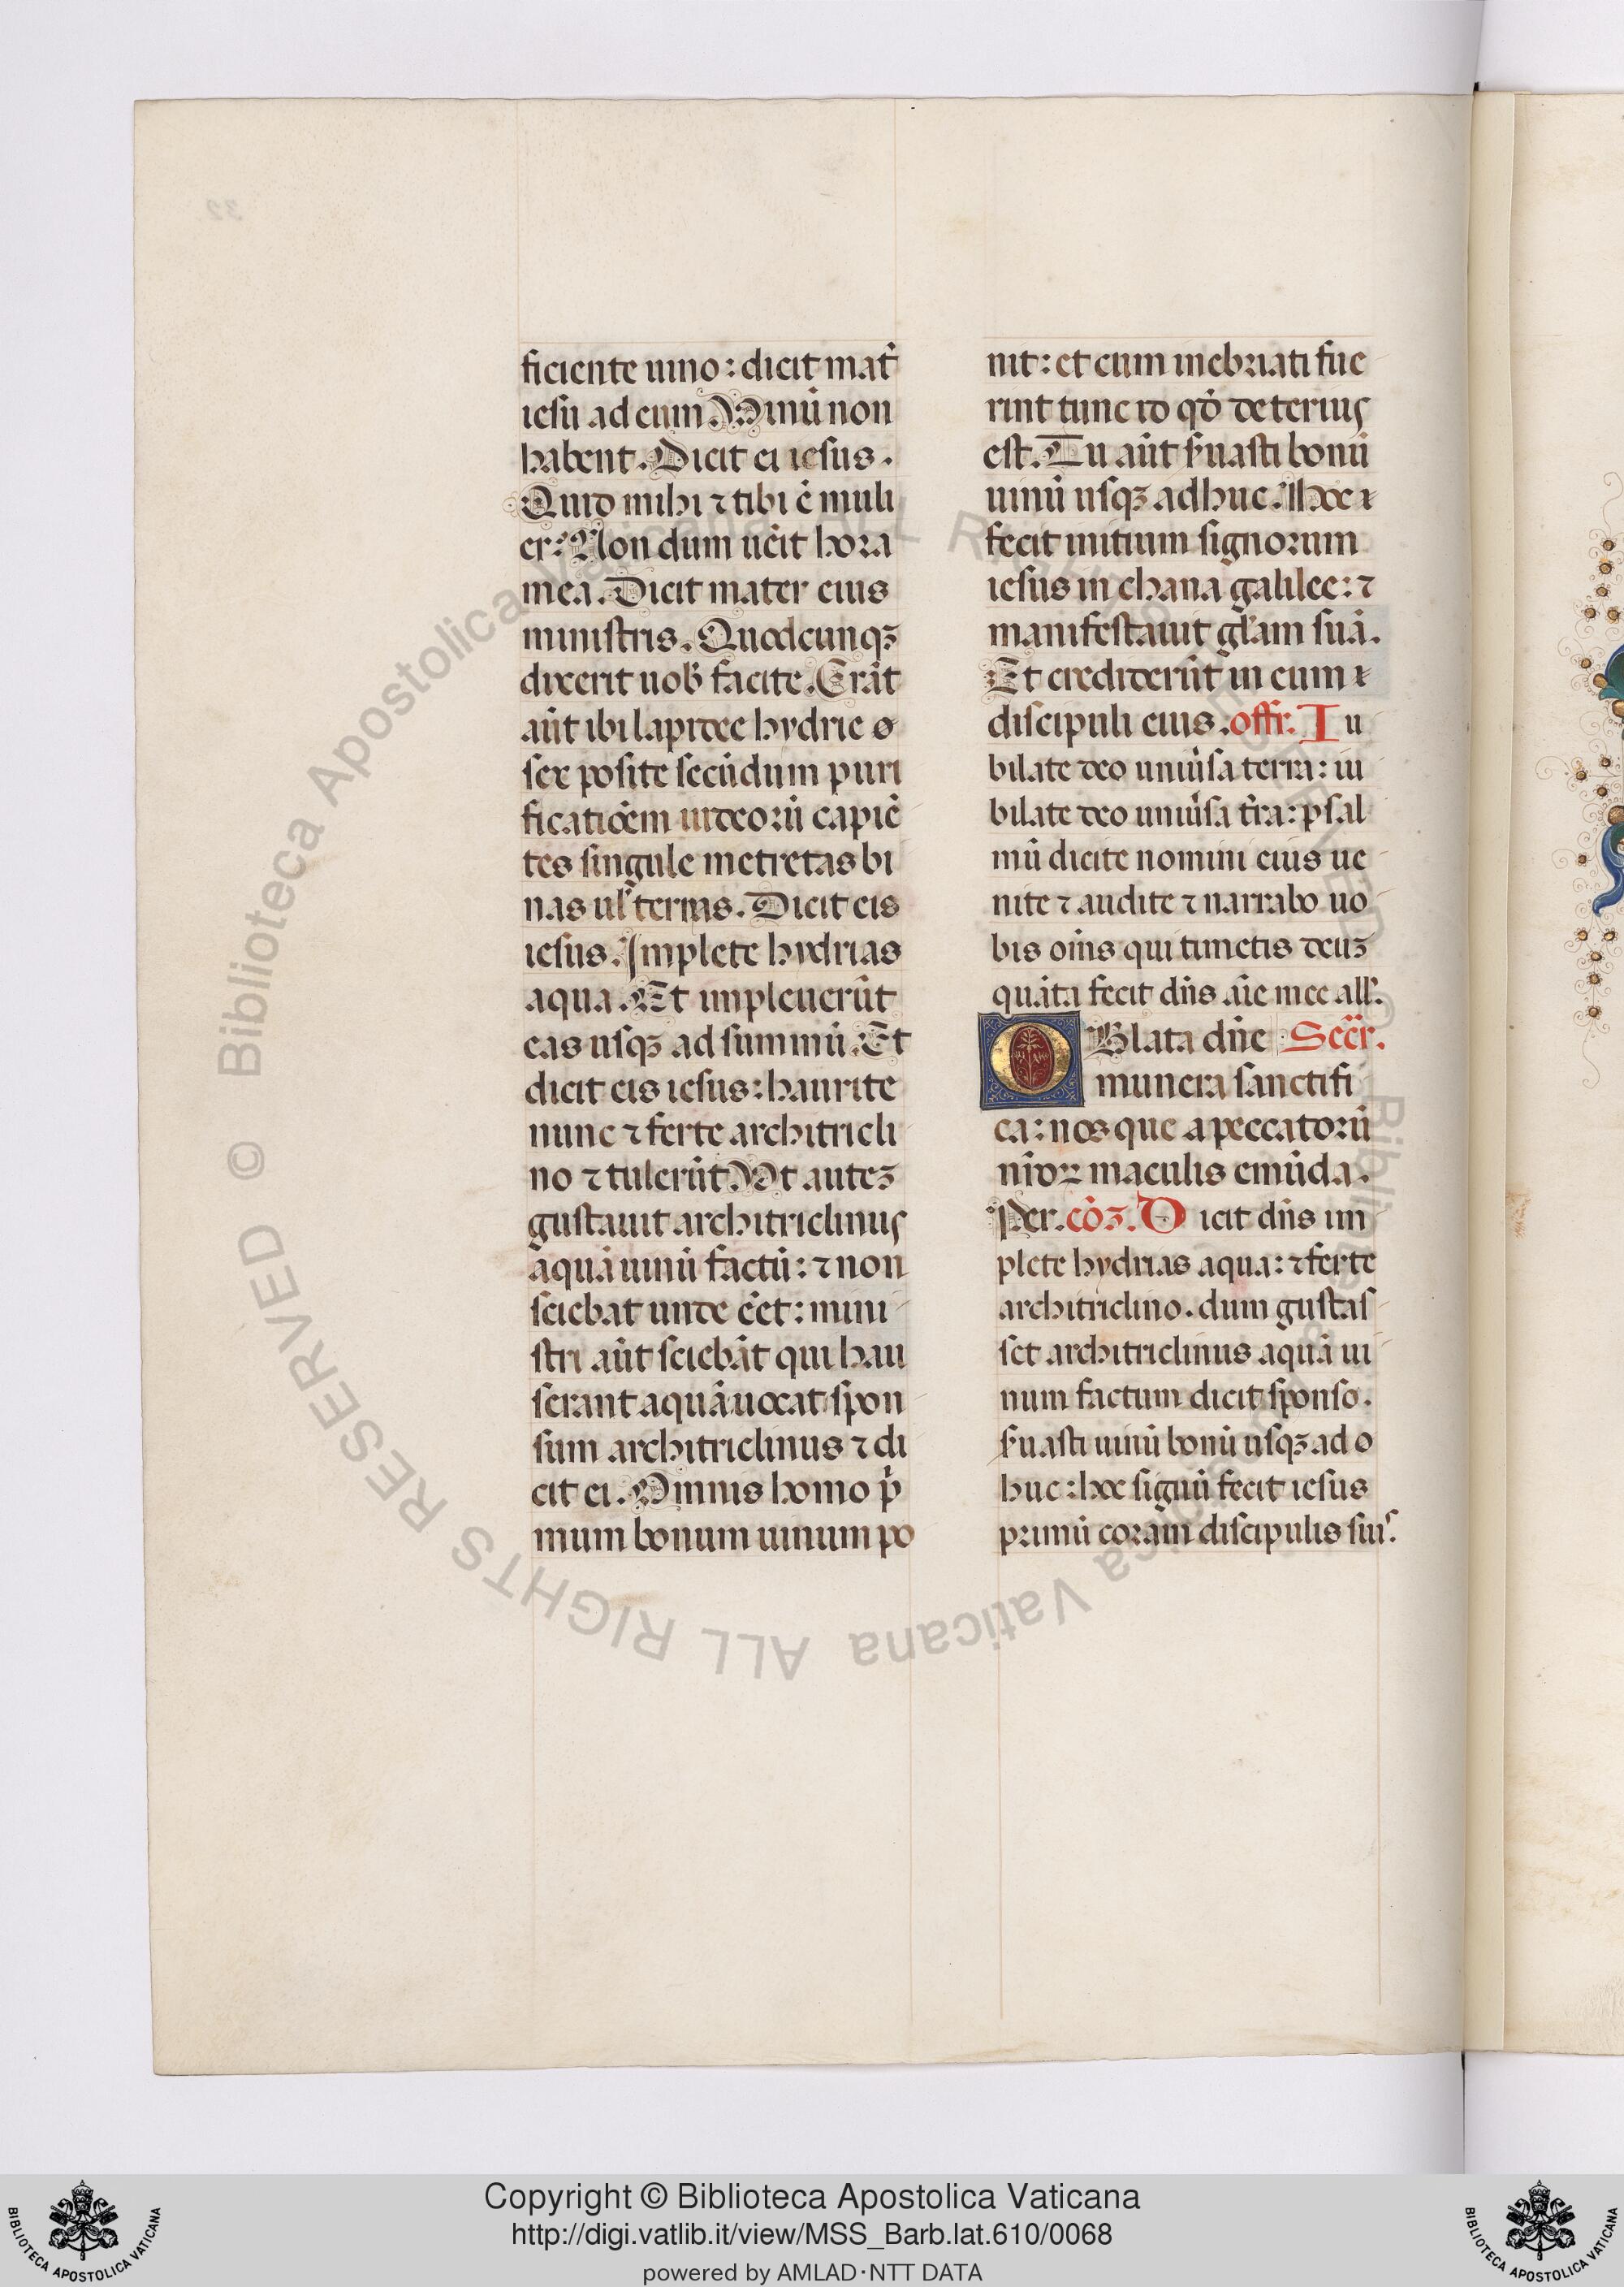 ficiente uino: dicit mat᷑
iesu ad eum Vinū non
habent. Dicit ei iesus.
Quid mihi ⁊ tibi ē muli
er? Non dum uēit hora
mea. Dicit mater eius
ministris. Quodcunqꝫ
dixerit uob᷑ facite. Erāt
aūt ibi lapidee hydrie
sex posite secūdum puri
ficatiōem iudeorū capiē
tes singule metretas bi
nas ul᷑ ternas. Dicit eis
iesus. Implete hydrias
aqua. Et impleuerūt
eas usqꝫ ad summū. Et
dicit eis iesus: haurite
nunc ⁊ ferte architricli
no ⁊ tulerūt Vt auteꝫ
gustauit architriclinus
aquā uinū factū: ⁊ non
sciebat unde eēt: mini
stri aūt sciebāt qui hau
serant aquā uocat spon
sum architriclinus ⁊ di
cit ei. Omnis homo pͥ
mum bonum uinum po
nit: et cum inebriati fue
rint tunc id qd̄ deterius
est. Tu aūt s᷑uasti bonū
uinū usqꝫ adhuc. Hoc
fecit initium signorum
iesus in chana galilee: ⁊
manifestauit gl᷑am suā.
Et crediderūt in eum
discipuli eius. offr. Iu
bilate deo uniu᷑sa terra: iu
bilate deo uniu᷑sa t᷑ra: psal
mū dicite nomini eius ue
nite ⁊ audite ⁊ narrabo uo
bis oīns qui timetis deuꝫ
quāta fecit dn̄s aīe mee all᷑.
OBlata dn̄e Secr̄.
munera sanctifi
ca: nos que a peccatorū
nr̄oꝝ maculis emūda.
Per. cōꝫ. Dicit dn̄s im
plete hydrias aqua: ⁊ ferte
architriclino. dum gustas
set architriclinus aquā ui
num factum dicit sponso.
s᷑uasti uinū bonū usqꝫ ad
huc: hoc signū fecit iesus
primū coram discipulis suis.
© Biblioteca Apostolica Vaticana ALL RIGHTS RESERVED
Copyright © Biblioteca Apostolica Vaticana
http://digi.vatlib.it/view/MSS_Barb.lat.610/0068
powered by AMLAD·NTT DATA
BIBLIOTECA APOSTOLICA VATICANA
BIBLIOTECA APOSTOLICA VATICANA